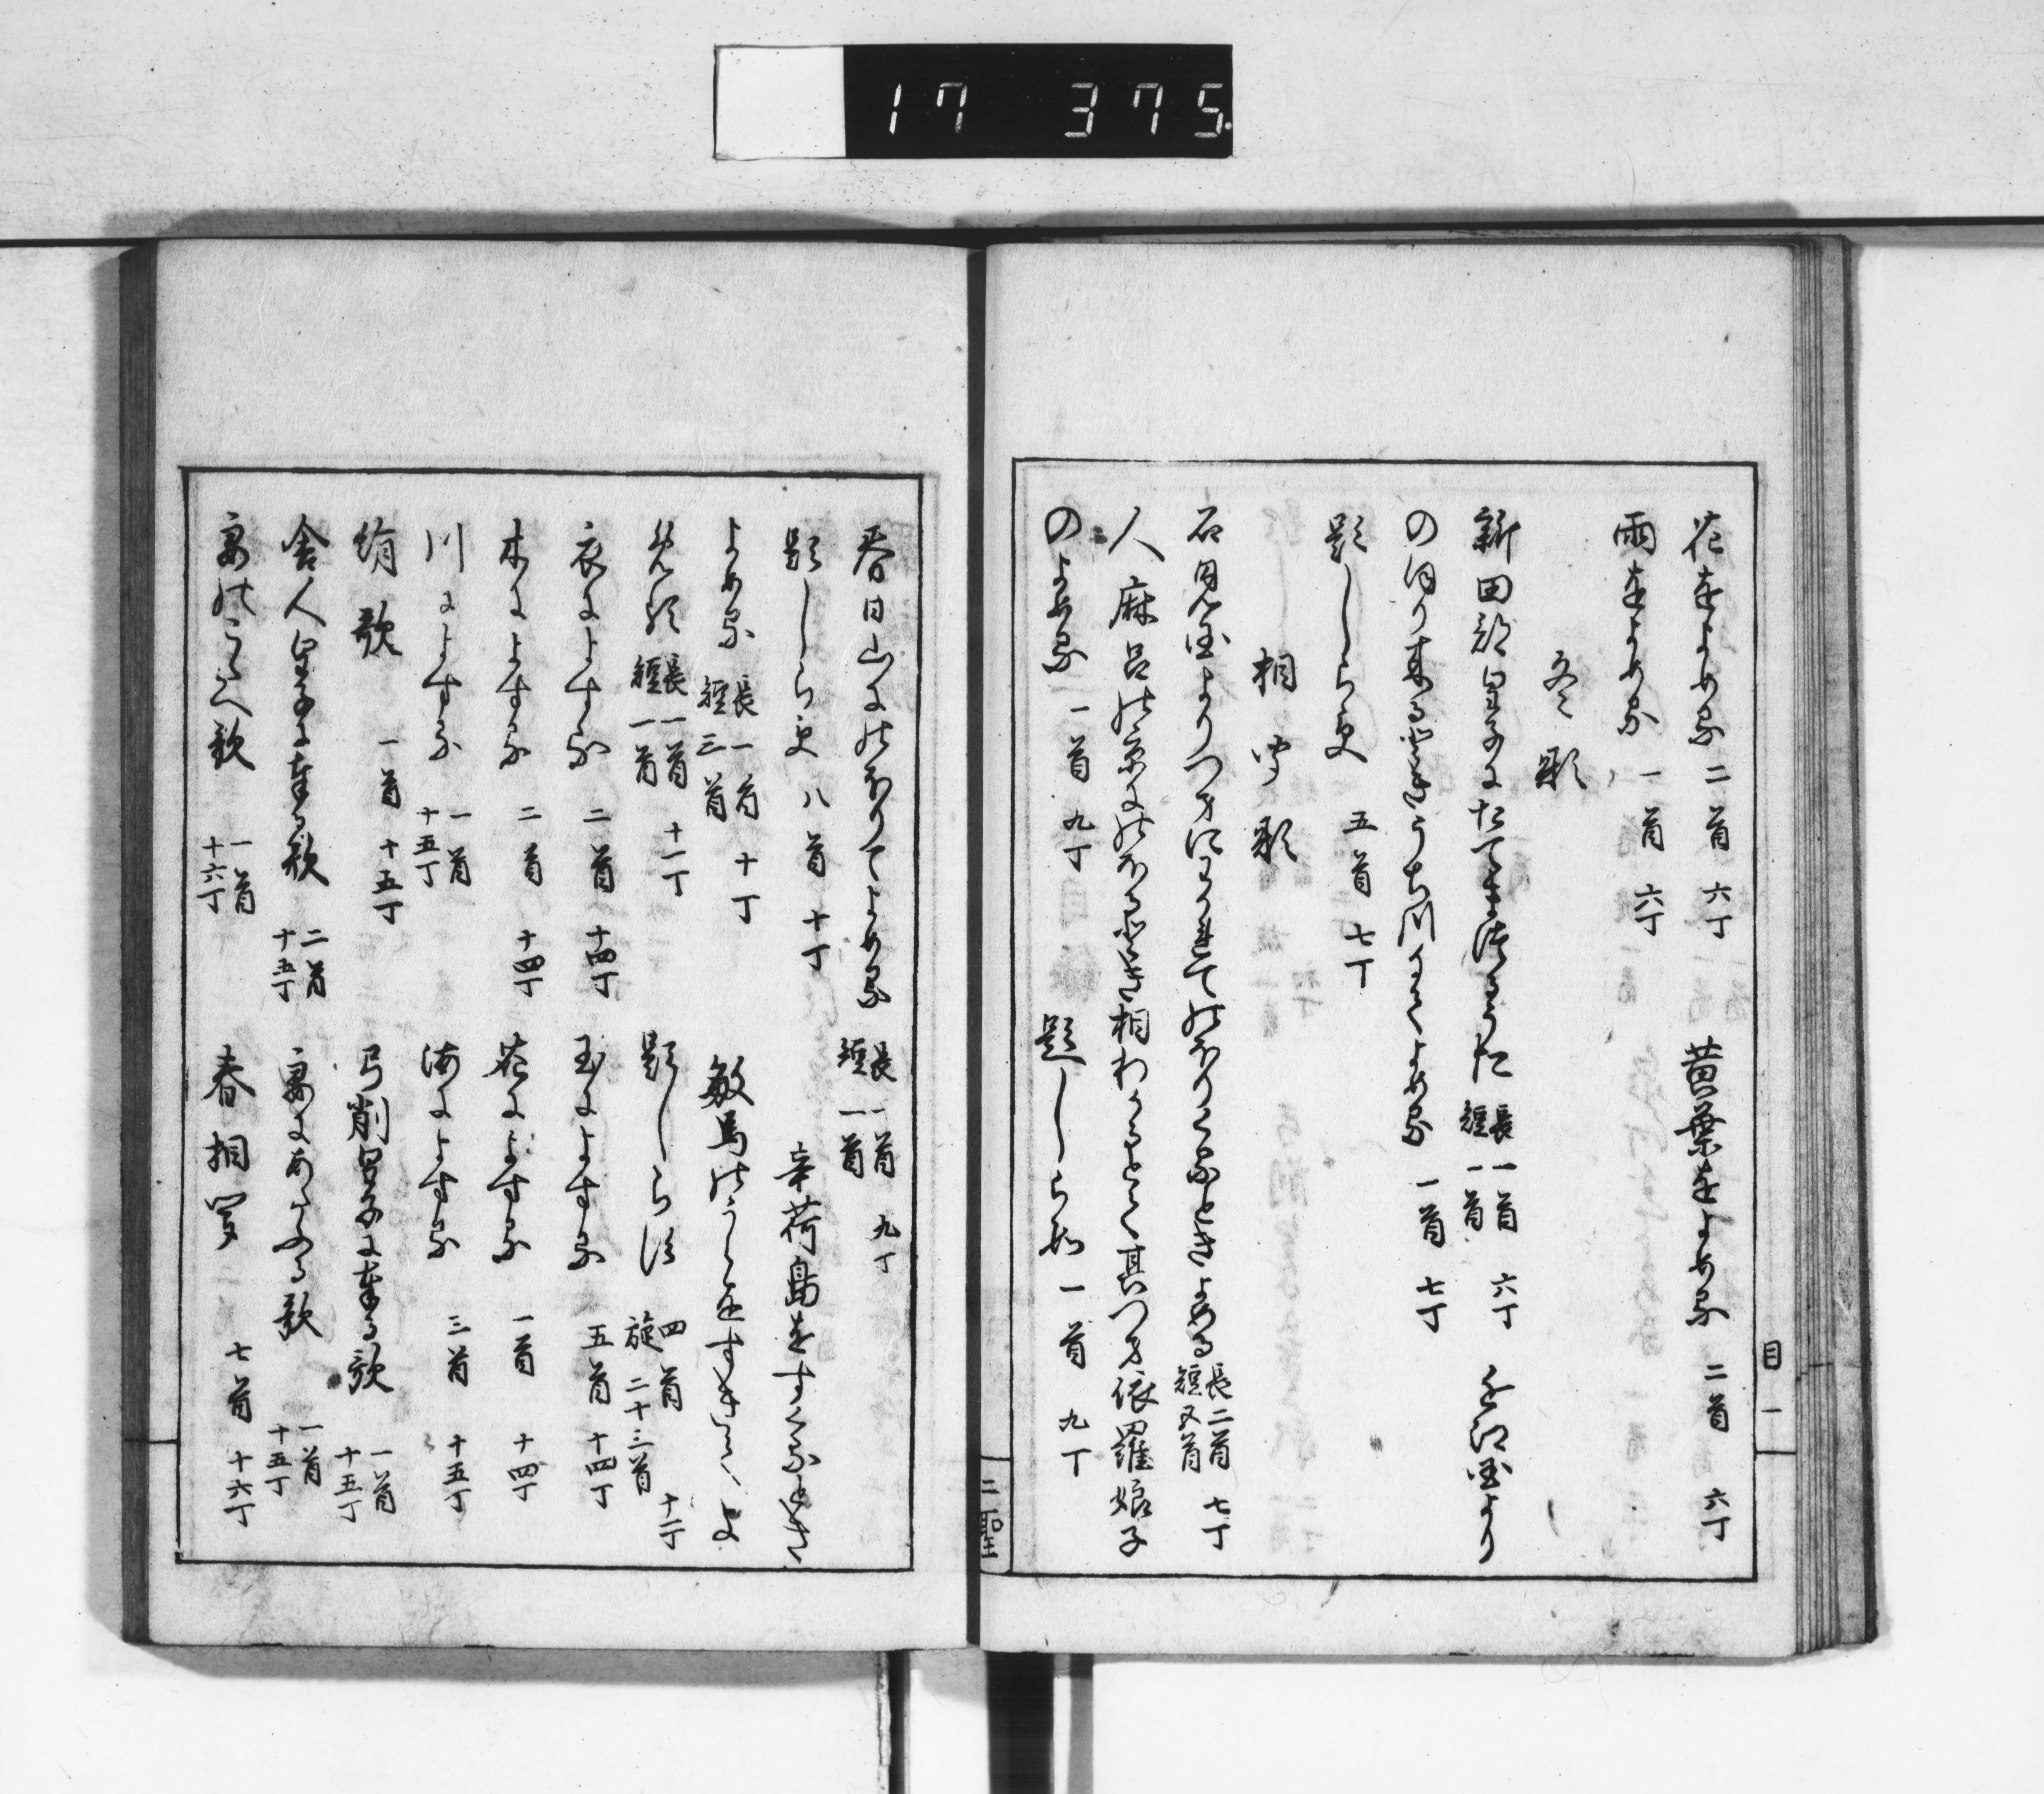 17 375
花をよめる 二首 六丁 黄葉をよめる 二首 六丁
雨をよめる 一首 六丁
冬歌
新田部皇子にたてまつるうた 長一首 短一首 六丁 近江国より
のほり来る時うち川にてよめる 一首 七丁
題しらす 五首 七丁
相聞歌
石見国よりつまにわかれてのほりくるときよめる 長二首 短又首 七丁
人麻呂の京にのほる時相わかるとて其つま依羅娘子
のよめる 一首 九丁 題しらす 一首 九丁
目一
二聖
春日山にのほりてよめる 長一首 短一首 九丁
題しらす 八首 十丁 辛荷島をすくるとき
よめる 長一首 短三首 十丁 敏馬のうらをすきてよ
め歌 長一首 短一首 十一丁 題しらす 四首 旋二十三首 十一丁
衣によする 二首 十四丁 玉によする 五首 十四丁
木によする 二首 十四丁 花によする 一首 十四丁
川によする 一首 十五丁 海によする 三首 十五丁
歌 一首 十五丁 弓削皇子に奉る歌 一首 十五丁
舎人皇子に奉る歌 二首 十五丁 歌 一首 十五丁
歌 一首 十六丁 春相聞 七首 十六丁